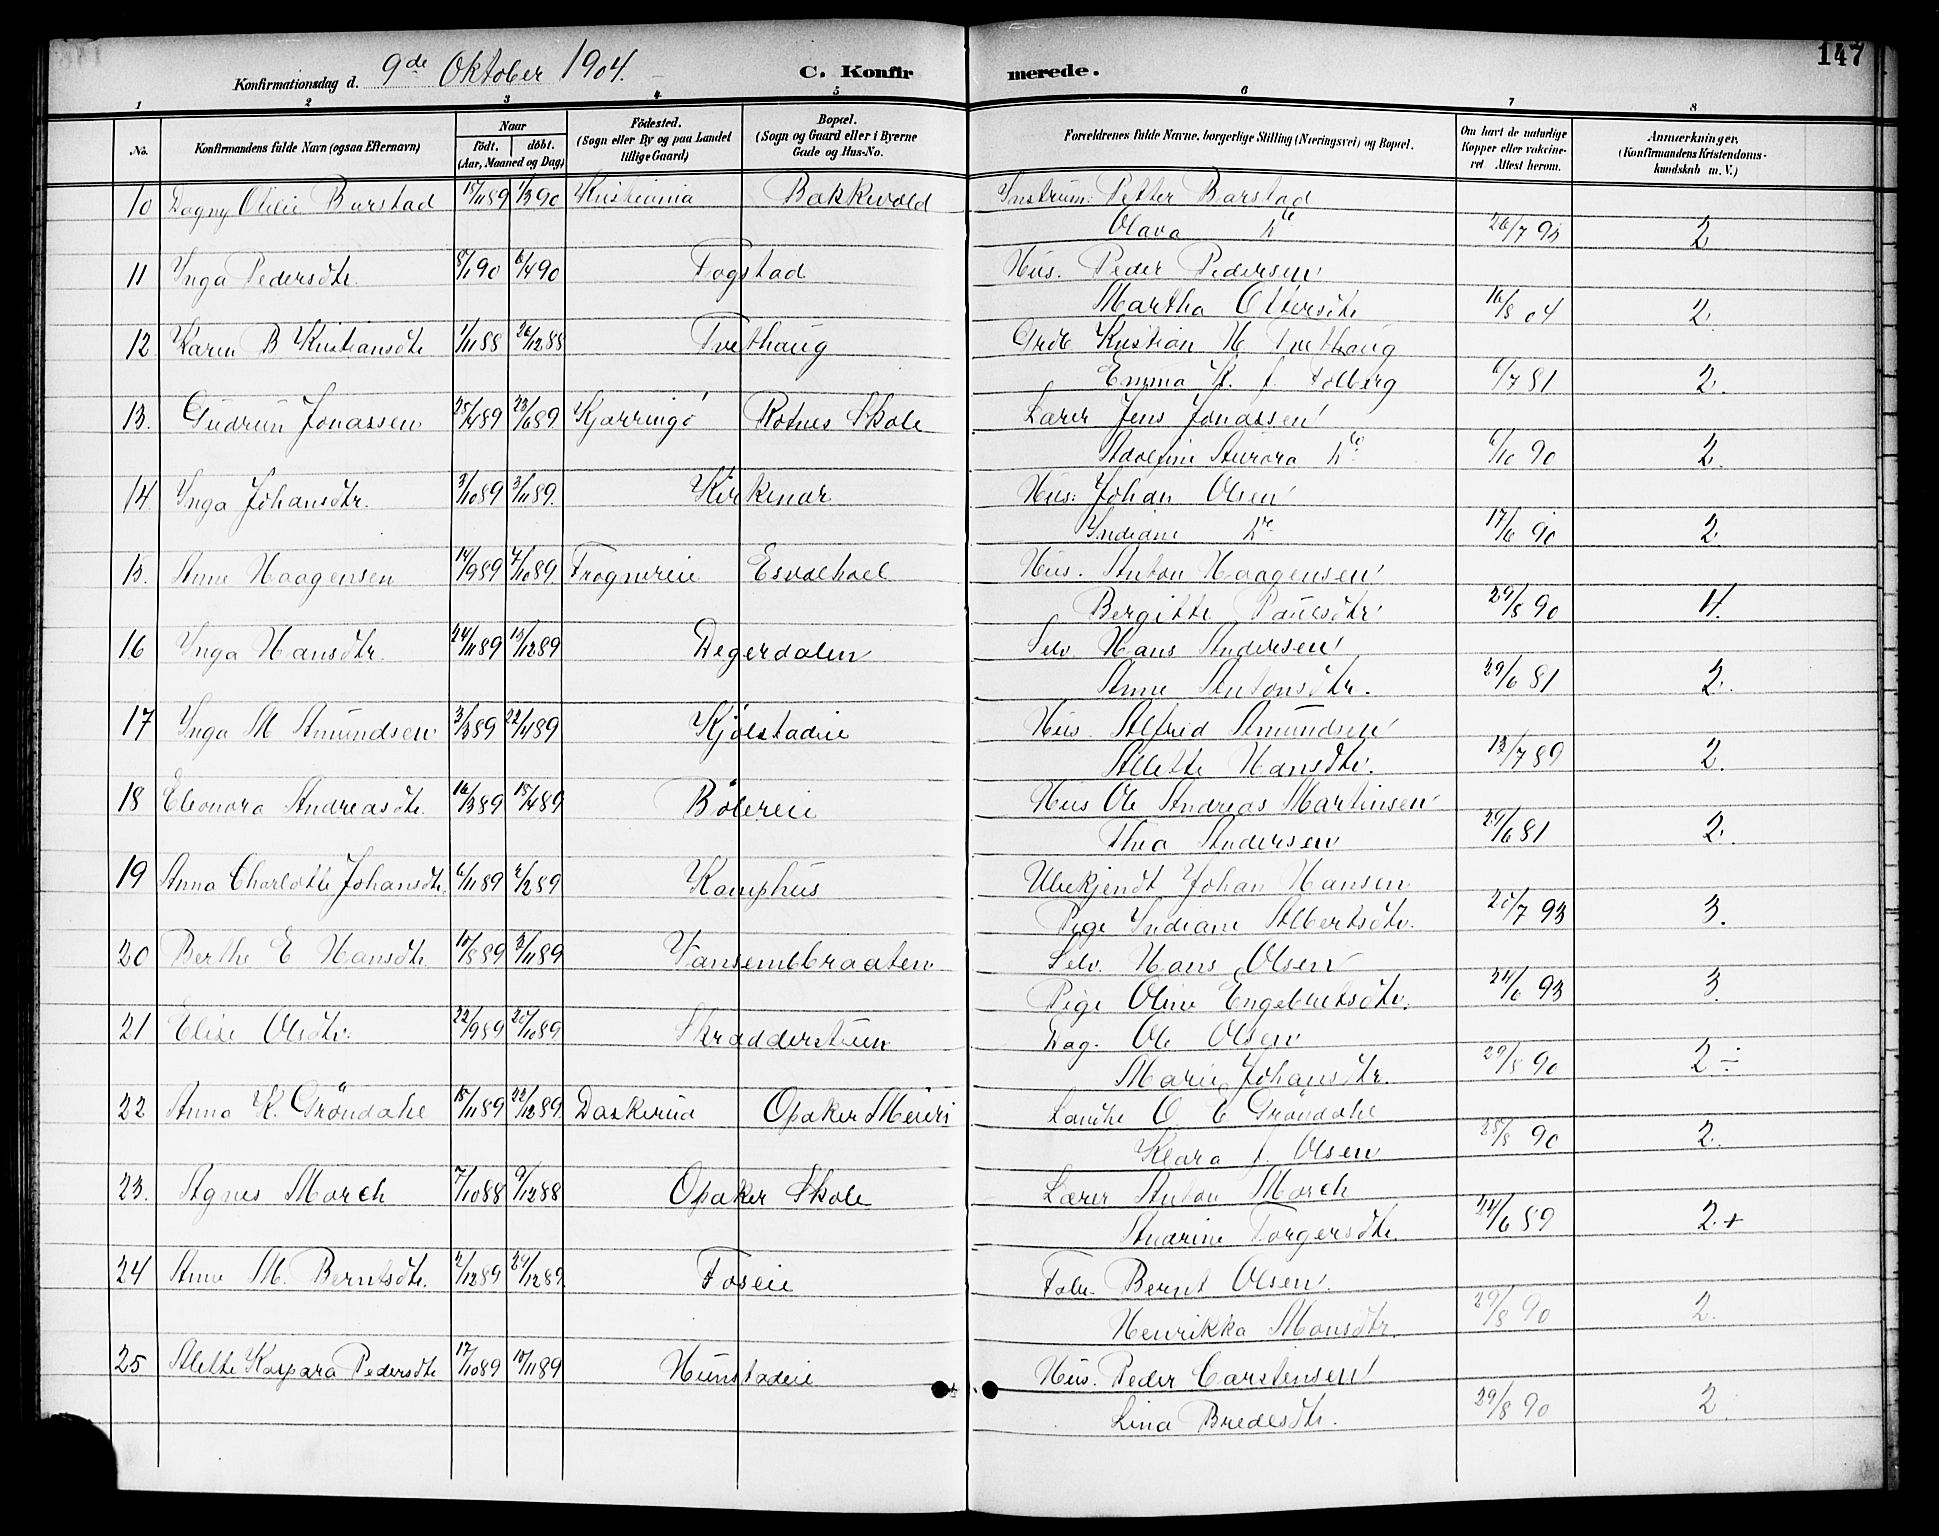 147
Konfirmationsdag d. 9de Oktober 1904.
C. Konfirmerede.
1 2 3 4 5 6 7 8
No. Konfirmandens fulde Navn (ogsaa Efternavn) Naar födt. döbt. (Aar, Maaned og Dag) Födested. (Sogn eller By og paa Landet tillige Gaard) Bopæl. (Sogn og Gaard eller i Byerne Gade og Hus-No. Forældrenes fulde Navne, borgerlige Stilling (Næringsvei) og Bopæl. Om havt de naturlige Kopper eller vaccineret Attest herom. Anmærkninger. (Konfirmandens Kristendomskundskab m. V.)
10 Dagny Otilie Barstad 15/11 89 1/3 90 Kristiania Bakkevold Instrum: Petter Barstad
Olava do 26/7 93 2
11 Inga Pedersdtr. 8/1 90 6/4 90 Fogstad Hus. Peder Pedersen
Martha Ottersdtr 16/8 04 2.
12 Karen B Kristiansdtr 1/11 88 26/12 88 Tvethaug Grdb Kristian H Tvethaug
Emma K. f. Folberg 6/7 81 2.
13. Gudrun Jonassen 25/4 89 23/6 89 Kjerringö Rotnes Skole Lærer Jens Jonassen
Adolfine Aurora do 6/10 90 2.
14 Inga Johansdtr. 3/10 89 3/11 89. Kirkenær Hus: Johan Olsen
Indiane do 17/6 90 2
15. Anne Haagensen 14/9 89 4/10 89 Frognereie Esvalhael Hus. Anton Haagensen
Bergitte Paulsdtr 29/8 90 4.
16 Inga Hansdtr. 24/11 89 15/12 89 Degerdalen Selv. Hans Andersen
Anne Antonsdtr. 29/6 81 2.
17 Inga M Amundsen 3/3 89 22/4 89 Kjölstadeie Hus. Alfred Amundsen
Alette Hansdtr. 13/7 89 2.
18 Eleonora Andreasdtr. 16/3 89 15/4 89 Bölereie Hus Ole Andreas Martinsen
Thea Andersen 29/6 81 2.
19 Anna Charlotte Johansdtr. 6/11 89 2/2 89 Kamphus Ubekjendt Johan Hansen
Pige Indiane Albertsdtr. 25/7 93 3.
20 Berthe E Hansdtr. 10/8 89 3/11 89 Vansembbraaten Selv. Hans Olsen
Pige Oline Engebretsdtr. 24/6 93 3.
21 Elise Olsdtr: 22/9 89 20/10 89 Skradderstuen Dag. Ole Olsen
Marie Johansdtr. 29/8 90 2 ÷
22 Anna K. Gröndahl 15/11 89 22/12 89. Daskerud Opaker Meieri Landh. O. E Gröndahl
Klara f. Olsen 25/8 90 2.
23. Agnes Morch 7/10 88 9/12 88 Opaker Skole Lærer Anton Morch
Andrine Torgersdtr. 24/6 89 2 +
24 Anne M. Berntsdtr. 2/12 89 29/12 89 Foseie Fabr. Bernt Olsen.
Henrikka Monsdtr. 29/8 90 2.
25 Alette Kaspara Pedersdtr 17/10 89 10/11 89 Hunstadeie Hus. Peder Carstensen
Lina Bredesdtr. 29/8 90 2